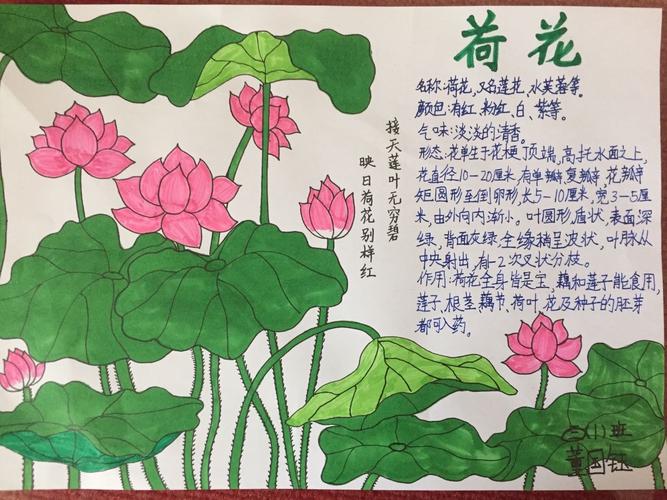 荷花
名称:荷花,又名莲花、水芙蓉等。
颜色:有红、粉红、白、紫等。
气味:淡淡的清香。
形态:花单生于花梗顶端,高托水面之上,
花直径10-20厘米,有单瓣、复瓣等,花瓣
矩圆形至倒卵形,长5-10厘米,宽3-5厘
米,由外向内渐小。叶圆形,盾状,表面深
绿,背面灰绿,全缘稍呈波状,叶脉从
中央射出,有1-2次叉状分枝。
作用:荷花全身皆是宝,藕和莲子能食用,
莲子、根茎、藕节、荷叶、花及种子的胚芽
都可入药。
接天莲叶无穷碧
映日荷花别样红
三(1)班
董国钰